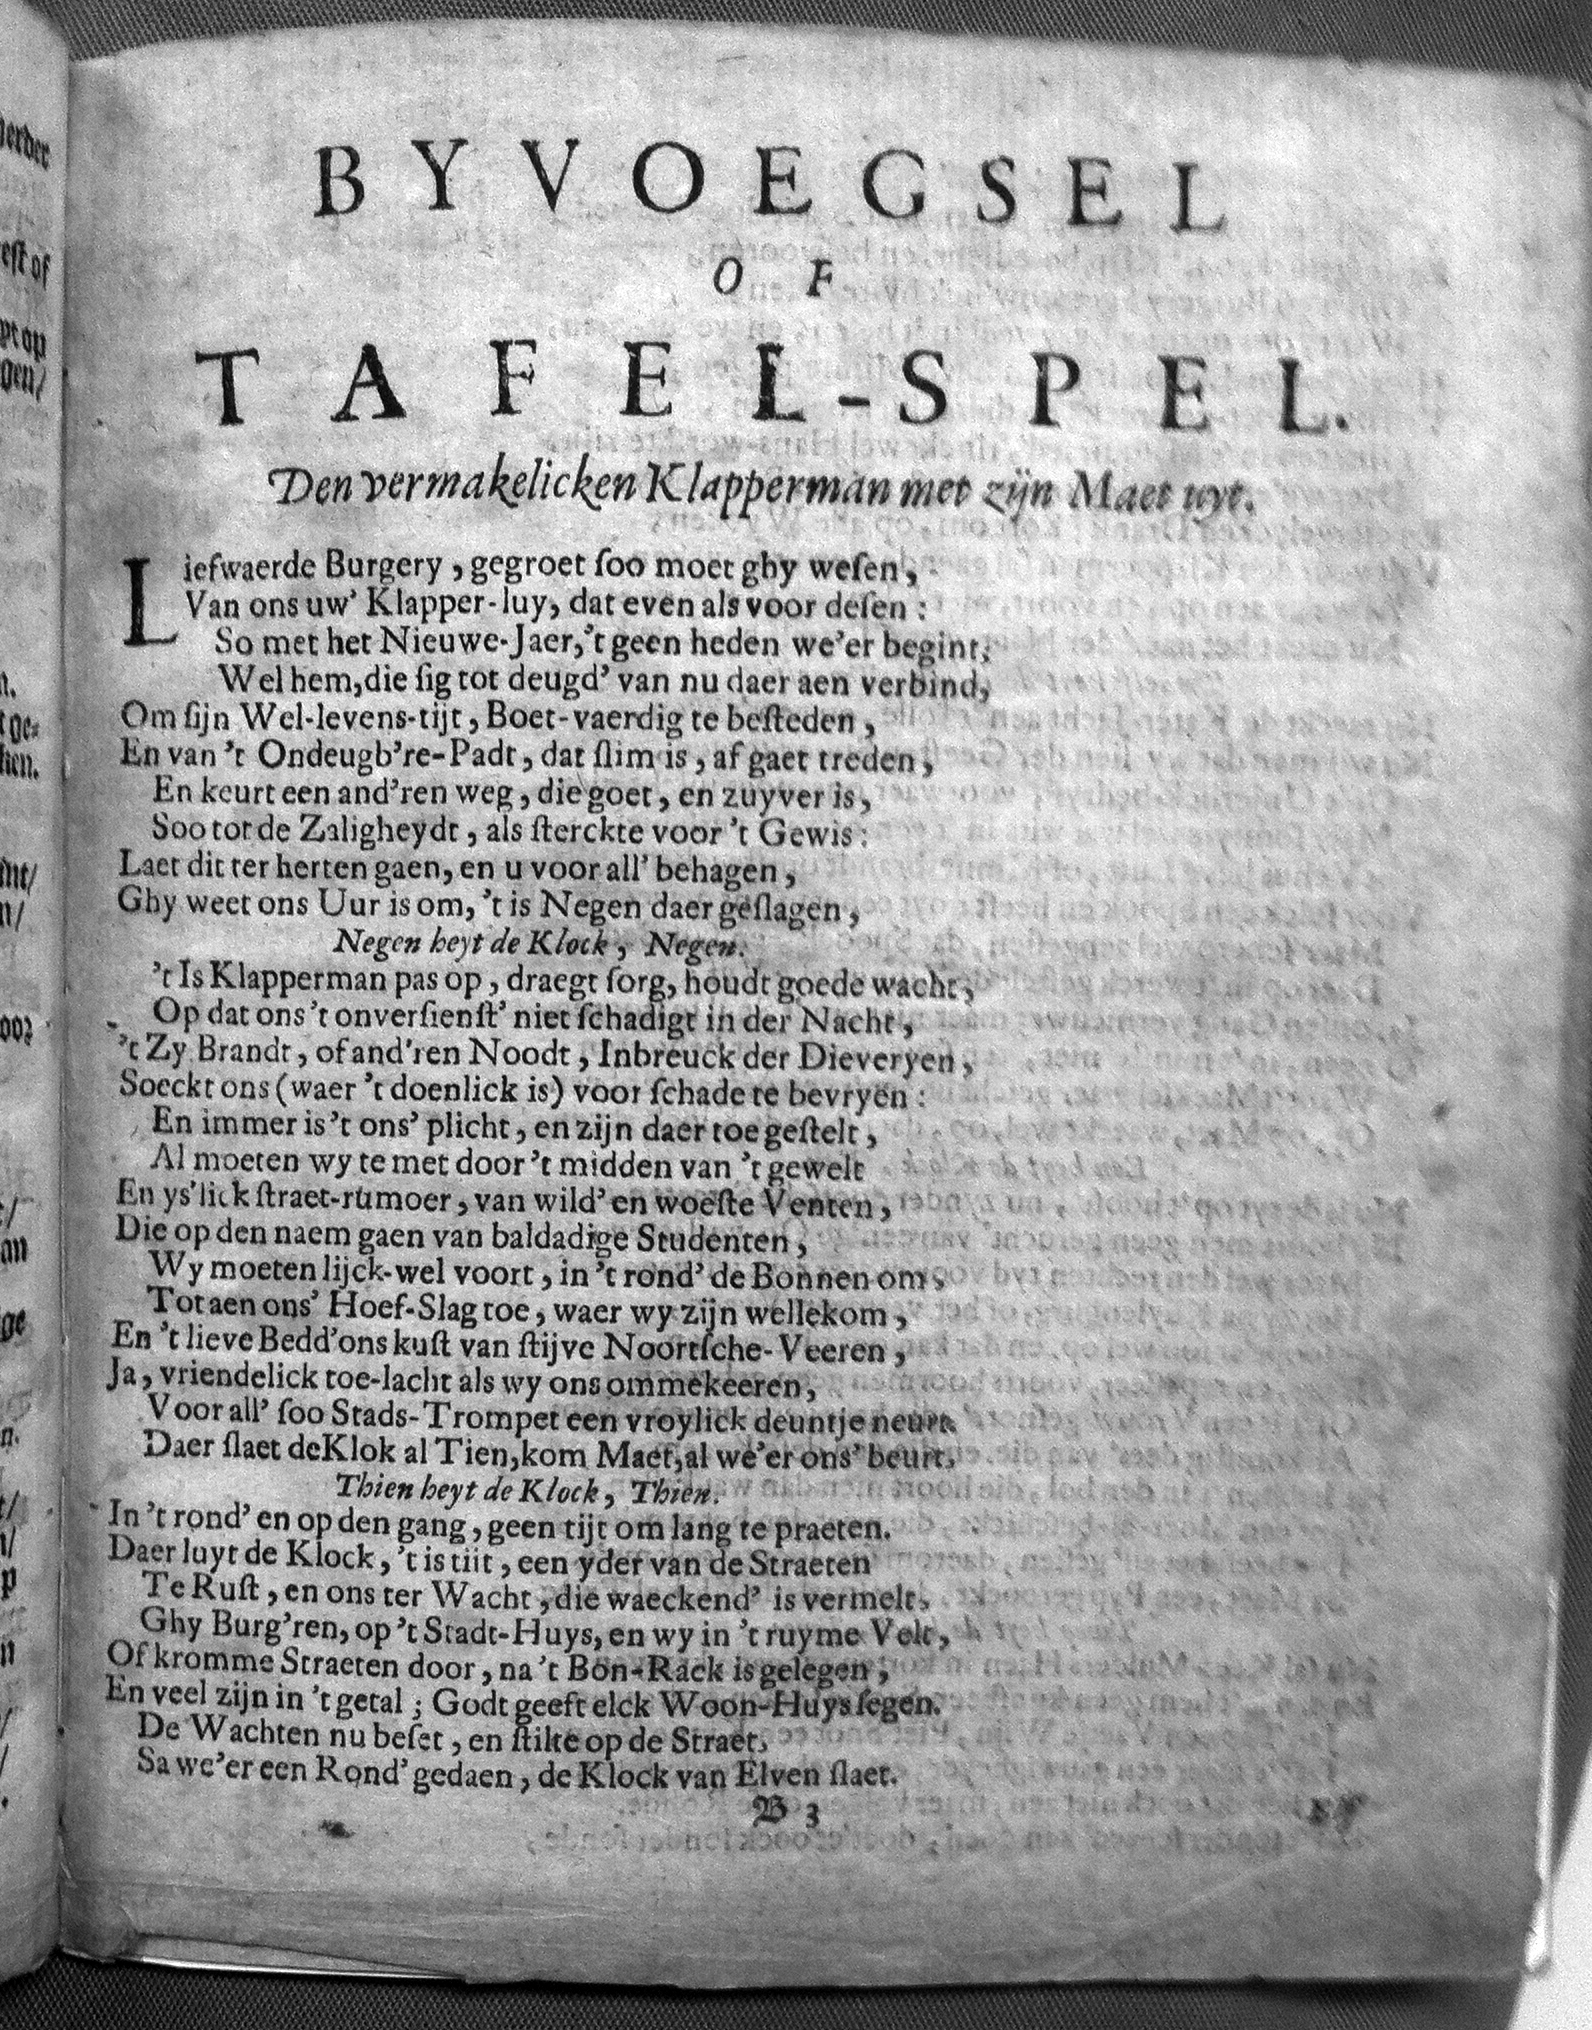 BYVOEGSEL
OF
TAFEL-SPEL.
Den vermakelicken Klapperman met zijn Maet uyt.
Liefwaerde Burgery, gegroet ſoo moet ghy weſen,
Van ons uw' Klapper-luy, dat even als voor deſen:
So met het Nieuwe-Jaer, 't geen heden we'er begint,
Wel hem, die ſig tot deugd' van nu daer aen verbind,
Om ſijn Wel-levens-tijt, Boet-vaerdig te beſteden,
En van 't Ondeugb're-Padt, dat ſlim is, af gaet treden,
En keurt een and'ren weg, die goet, en zuyver is,
Soo tot de Zaligheydt, als ſterckte voor 't Gewis:
Laet dit ter herten gaen, en u voor all' behagen,
Ghy weet ons Uur is om, 't is Negen daer geſlagen,
Negen heyt de Klock, Negen.
't Is Klapperman pas op, draegt ſorg, houdt goede wacht,
Op dat ons 't onverſienſt' niet ſchadigt in der Nacht,
't Zy Brandt, of and'ren Noodt, Inbreuck der Dieveryen,
Soeckt ons (waer 't doenlick is) voor ſchade te bevryën:
En immer is 't ons' plicht, en zijn daer toe geſtelt,
Al moeten wy te met door 't midden van 't gewelt
En ys'lick ſtraet-rumoer, van wild' en woeſte Venten,
Die op den naem gaen van baldadige Studenten,
Wy moeten lijck-wel voort, in 't rond' de Bonnen om,
Tot aen ons' Hoef-Slag toe, waer wy zijn wellekom,
En 't lieve Bedd' ons kuſt van ſtijve Noortſche-Veeren,
Ja, vriendelick toe-lacht als wy ons ommekeeren,
Voor all' ſoo Stads-Trompet een vroylick deuntje neurt.
Daer ſlaet de Klok al Tien, kom Maet, al we'er ons' beurt,
Thien heyt de Klock, Thien.
In 't rond' en op den gang, geen tijt om lang te praeten.
Daer luyt de Klock, 't is tiit, een yder van de Straeten
Te Ruſt, en ons ter Wacht, die waeckend' is vermelt,
Ghy Burg'ren, op 't Stadt-Huys, en wy in 't ruyme Velt,
Of kromme Straeten door, na 't Bon-Rack is gelegen,
En veel zijn in 't getal; Godt geeft elck Woon-Huys ſegen.
De Wachten nu beſet, en ſtilte op de Straet,
Sa we'er een Rond' gedaen, de Klock van Elven ſlaet.
B 3